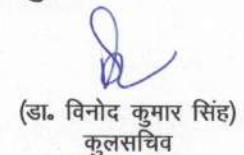 (डा० विनोद कुमार सिंह)
कुलसचिव